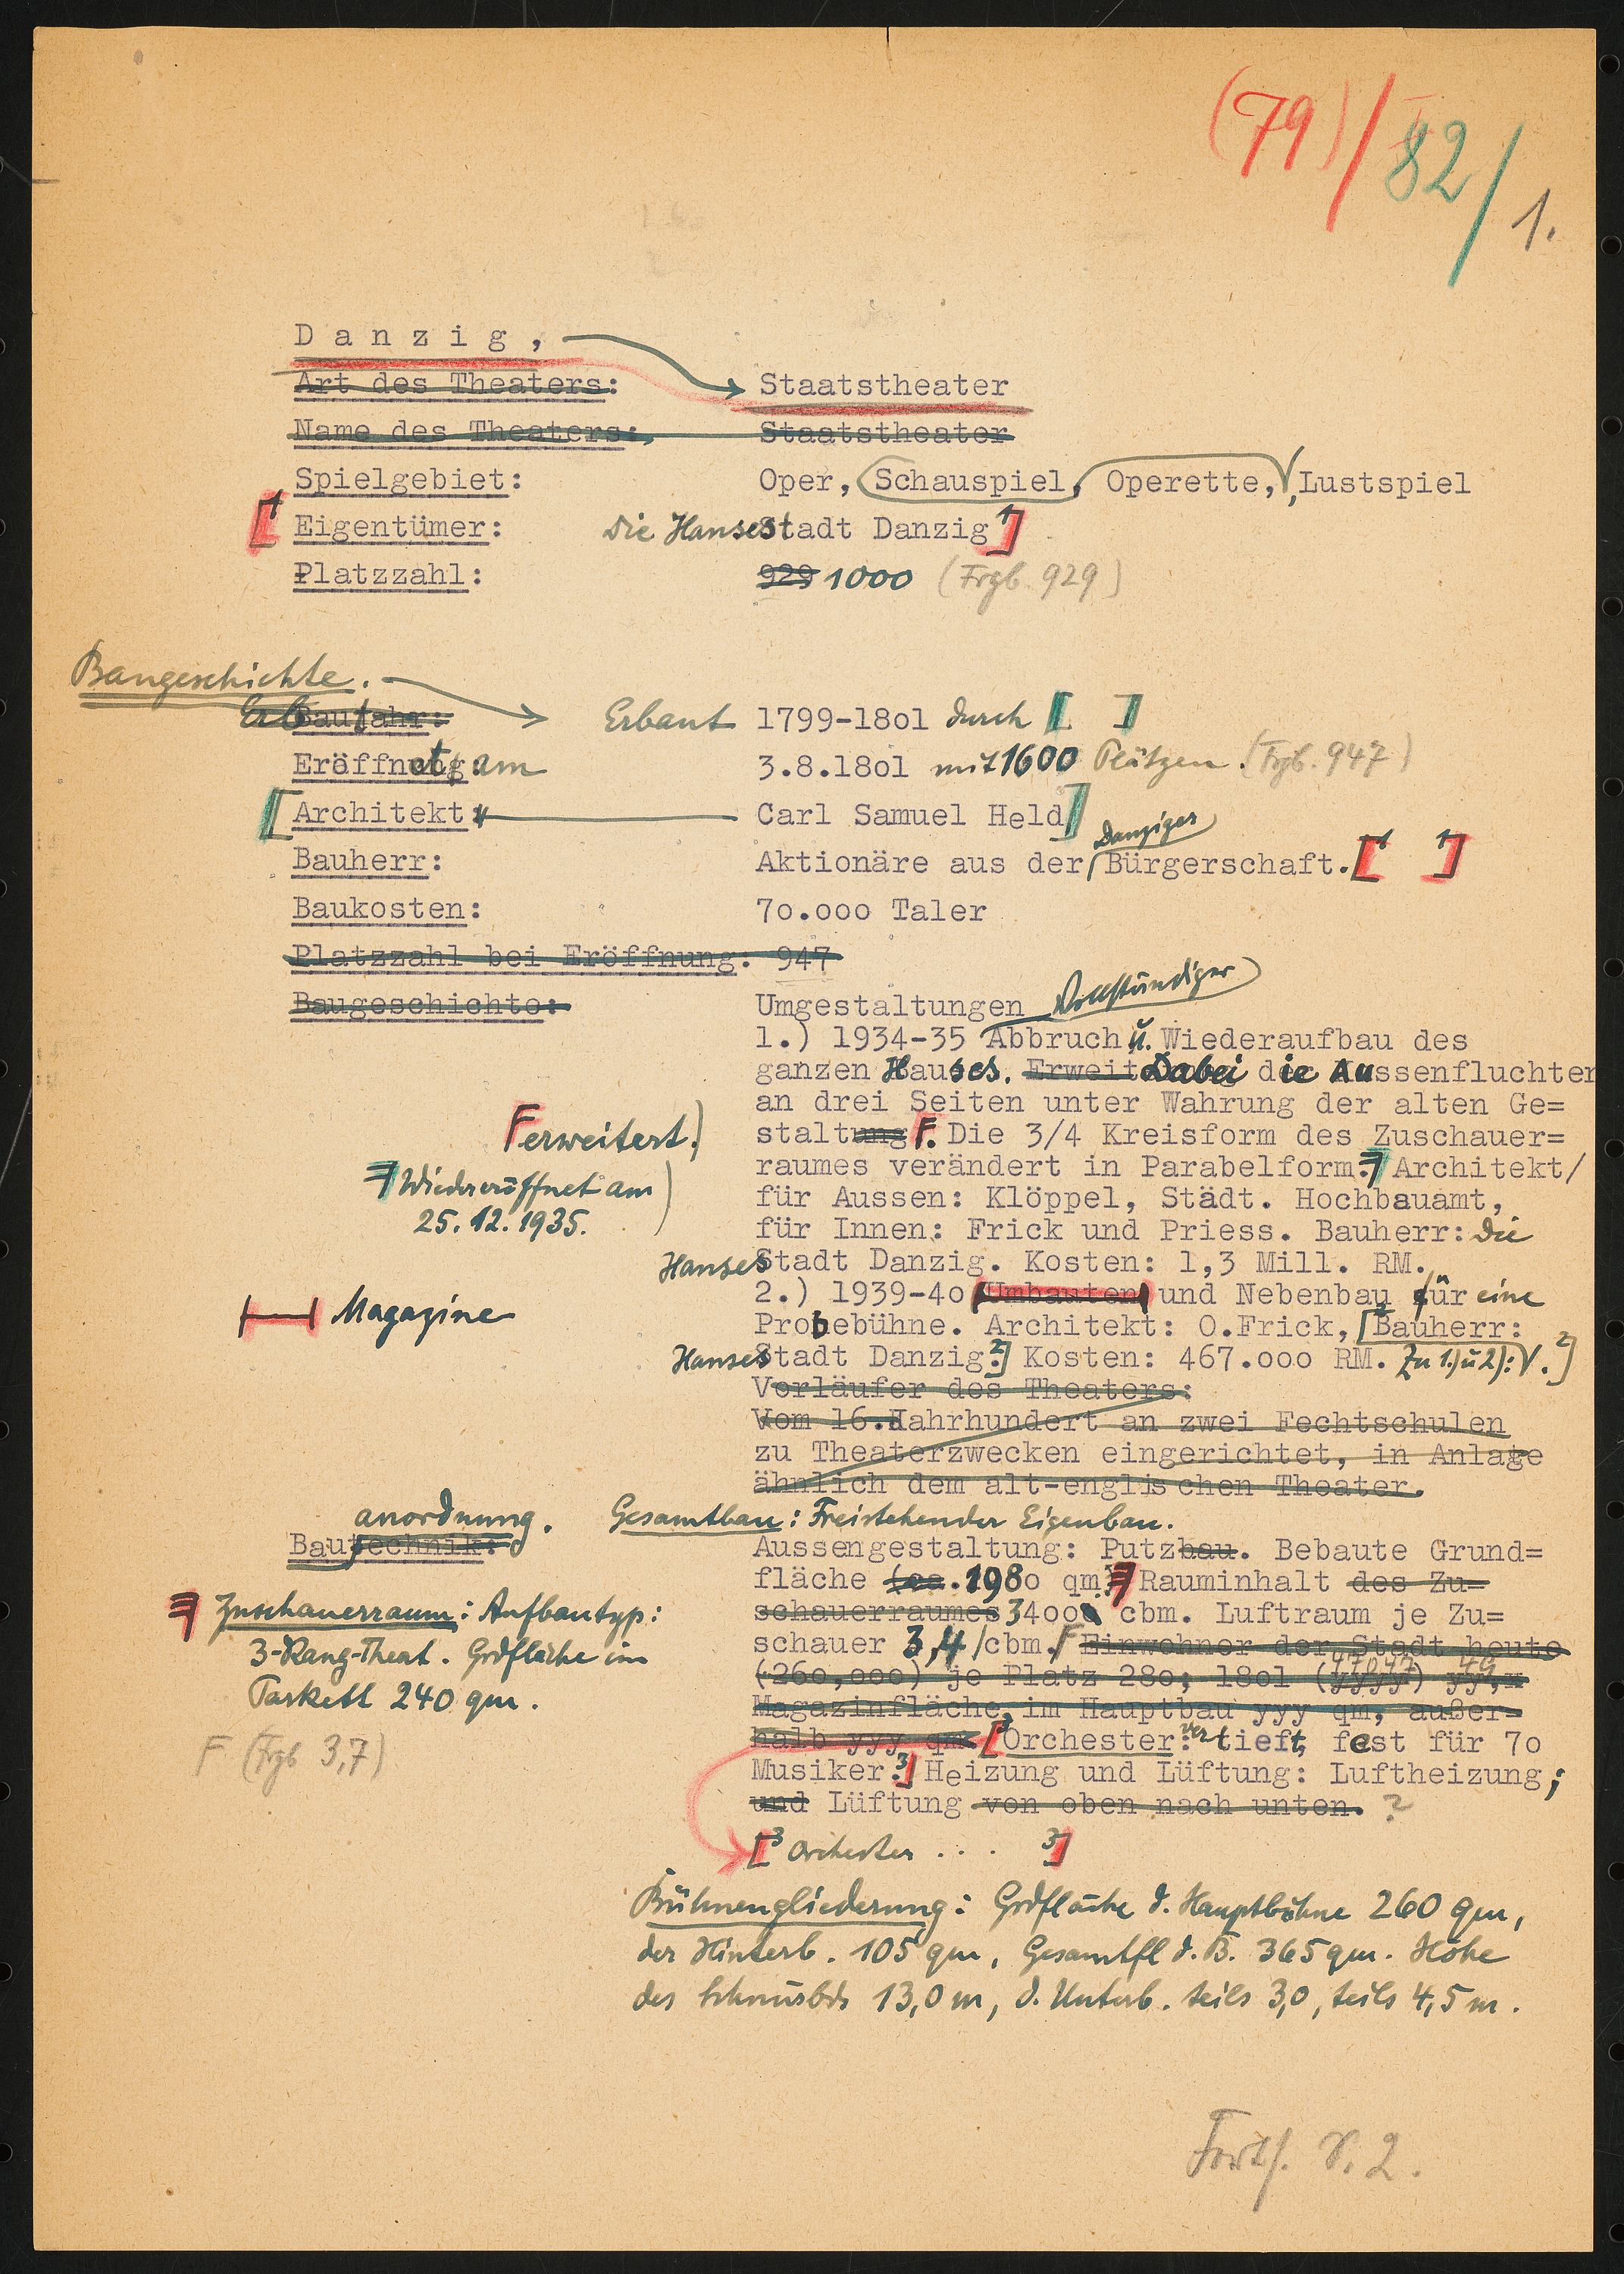 (79) / 82 / 1.
D a n z i g ,
Art des Theaters: Staatstheater
Name des Theaters: Staatstheater
Spielgebiet: Oper, Schauspiel, Operette, Lustspiel
Eigentümer: Die Hansestadt Danzig
Platzzahl: 929 1000 (Frgb. 929)
Baugeschichte.
Erbaut 1799-18o1 durch [ ]
Eröffnet am 3.8.18o1 mit 1600 Plätzen. (Frgb. 947)
[Architekt: Carl Samuel Held]
Danziger
Bauherr: Aktionäre aus der Bürgerschaft. [ ]
Baukosten: 7o.ooo Taler
Platzzahl bei Eröffnung: 947
Vollständiger
Baugeschichte: Umgestaltungen
1.) 1934-35 Abbruch u. Wiederaufbau des
ganzen Hauses. Dabei die Aussenfluchten
an drei Seiten unter Wahrung der alten Ge=
F erweitert.
staltung F. Die 3/4 Kreisform des Zuschauer=
raumes verändert in Parabelform. Architekt/
Wiedereröffnet am
25.12.1935.
für Aussen: Klöppel, Städt. Hochbauamt,
für Innen: Frick und Priess. Bauherr: die
Hansestadt Danzig. Kosten: 1,3 Mill. RM.
2.) 1939-4o Umbauten und Nebenbau für eine
Magazine
Probebühne. Architekt: O.Frick, [Bauherr:
Hansestadt Danzig.] Kosten: 467.ooo RM. Zu 1.) u 2.): V. 2]
Vorläufer des Theaters:
Vom 16.Jahrhundert an zwei Fechtschulen
zu Theaterzwecken eingerichtet, in Anlage
ähnlich dem alt-englischen Theater.
anordnung. Gesamtbau: Freistehender Eigenbau.
Bautechnik: Aussengestaltung: Putzbau. Bebaute Grund=
fläche (ca. 198o qm. Rauminhalt des Zu=
schauerraumes 34oo cbm. Luftraum je Zu=
schauer 3,4/cbm. F Einwohner der Stadt heute
(26o,ooo) je Platz 28o; 18o1 (47047) 49
Magazinfläche im Hauptbau yyy qm, außer=
halb yyy qm [3 Orchester: vertieft, fest für 7o
Musiker. 3] Heizung und Lüftung: Luftheizung;
und Lüftung von oben nach unten. ?
Zuschauerraum: Aufbautyp:
3-Rang-Theat. Grdfläche im
Parkett 240 qm.
F (Frgb 3,7)
[3 Orchester ... 3]
Bühnengliederung: Grdfläche d. Hauptbühne 260 qm,
der Hinterb. 105 qm, Gesamtfl d. B. 365 qm. Höhe
des Schnürbds 13,0 m, d. Unterb. teils 3,0, teils 4,5 m.
Forts. S. 2.